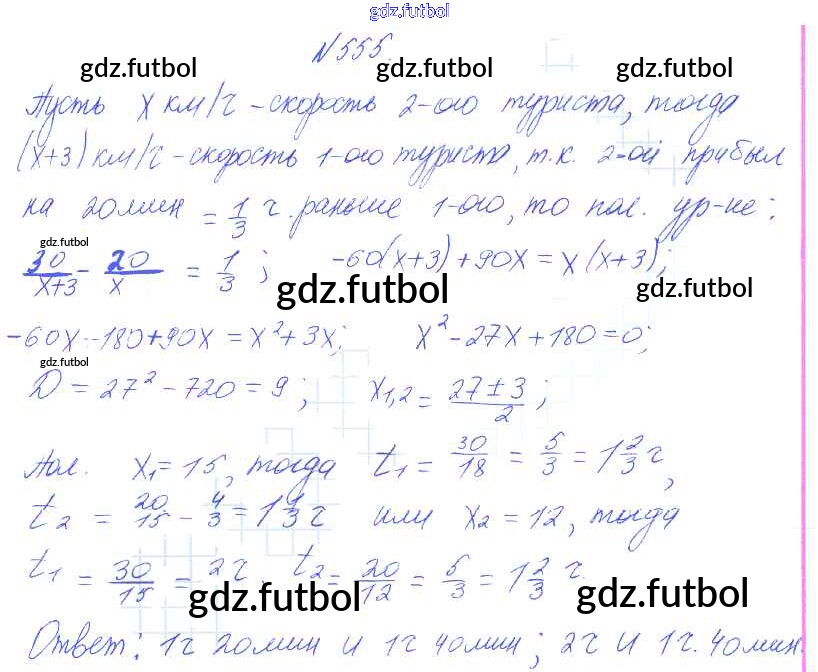 gdz.futbol
N 555.
gdz.futbol gdz.futbol gdz.futbol
Пусть x км/ч - скорость 2-ого туриста, тогда
(x+3) км/ч - скорость 1-ого туриста, т.к. 2-ой прибыл
на 20 мин = 1/3 ч. раньше 1-ого, то пол. ур-ие:
gdz.futbol
30/x+3 - 20/x = 1/3; -60(x+3)+90x = x(x+3);
gdz.futbol gdz.futbol
-60x-180+90x = x²+3x; x²-27x+180=0;
gdz.futbol
D = 27²-720 = 9; x1,2 = 27±3/2;
Пол. x₁=15, тогда t₁ = 30/18 = 5/3 = 1 2/3 ч,
t₂ = 20/15 - 4/3 = 1 1/3 ч или x₂ = 12, тогда
t₁ = 30/15 = 2 ч, t₂ = 20/12 = 5/3 = 1 2/3 ч.
gdz.futbol gdz.futbol
Ответ: 1ч 20мин и 1ч 40мин; 2ч и 1ч. 40мин.